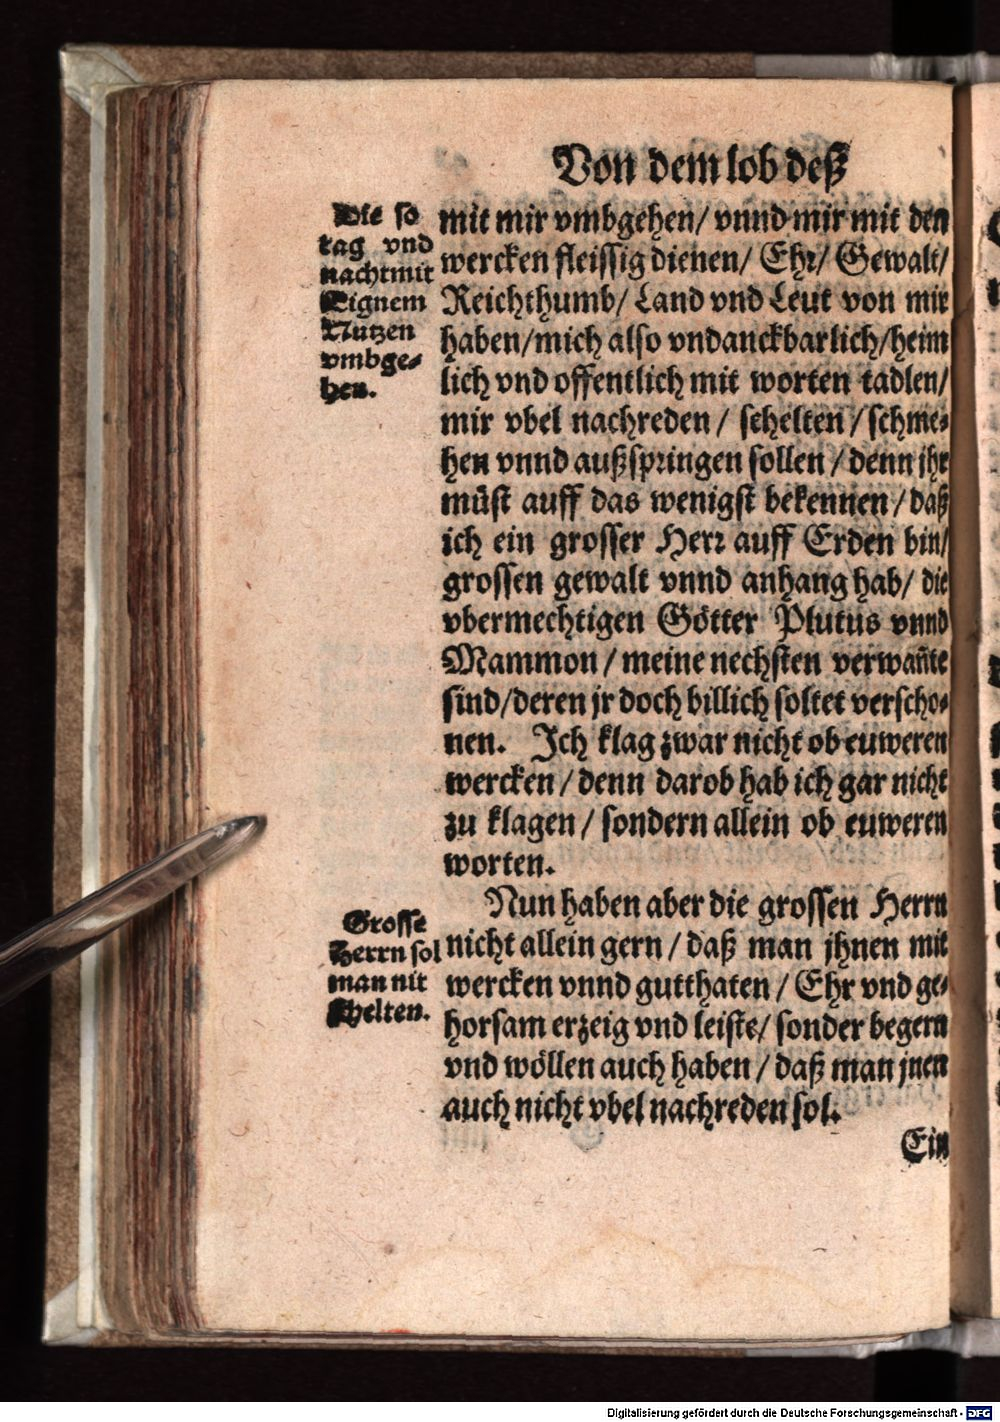 Von dem lob deß
Die so
tag vnd
nacht mit
Eignem
Nutzen
vmbge-
hen.
mit mir vmbgehen/ vnnd mir mit den
wercken fleissig dienen/ Ehr/ Gewalt/
Reichthumb/ Land vnd Leut von mir
haben/ mich also vndanckbarlich/ heim
lich vnd offentlich mit worten tadlen/
mir vbel nachreden / schelten / schme-
hen vnnd außspringen sollen / denn jhr
müst auff das wenigst bekennen / daß
ich ein grosser Herr auff Erden bin/
grossen gewalt vnnd anhang hab/ die
vbermechtigen Götter Plutus vnnd
Mammon / meine nechsten verwañte
sind/ deren jr doch billich soltet verscho-
nen. Ich klag zwar nicht ob euweren
wercken / denn darob hab ich gar nicht
zu klagen / sondern allein ob euweren
worten.
Grosse
Herrn sol
man nit
schelten.
Nun haben aber die grossen Herrn
nicht allein gern / daß man jhnen mit
wercken vnnd gutthaten / Ehr vnd ge-
horsam erzeig vnd leiste/ sonder begern
vnd wöllen auch haben / daß man jnen
auch nicht vbel nachreden sol.
Ein
Digitalisierung gefördert durch die Deutsche Forschungsgemeinschaft - DFG